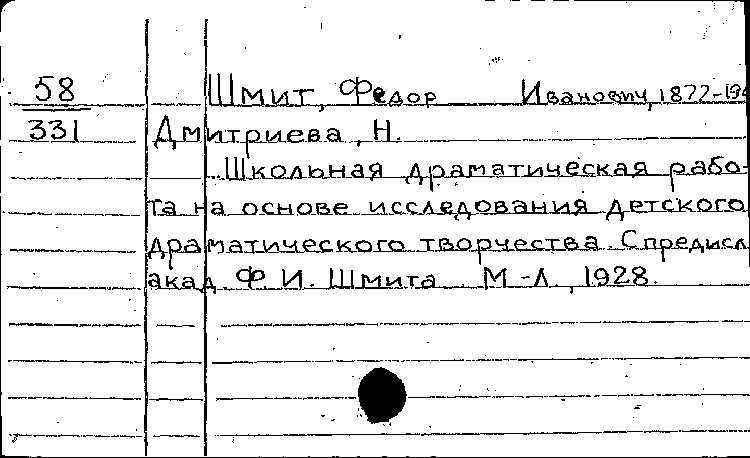 58 Шмит, Федор Иванович, 1872-194
331 Дмитриева, Н.
Школьная драматическая рабо-
та на основе исследования детского
драматического творчества. С предисл
акад. Ф И. Шмита М-Л, 1928.